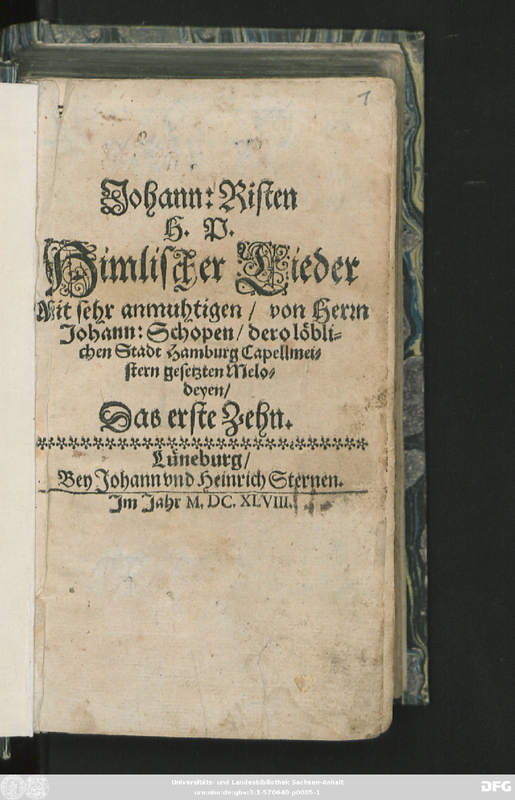 1
Johann: Risten
H. P.
Himlischer Lieder
Mit sehr anmuhtigen / von Herrn
Johann: Schopen / dero löbli-
chen Stadt Hamburg Capellmei-
stern gesetzten Melo-
deyen /
Das erste Zehn.
Lüneburg /
Bey Johann vnd Heinrich Sternen.
Im Jahr M. DC. XLVIII.
Universitäts- und Landesbibliothek Sachsen-Anhalt
urn:nbn:de:gbv:3:1-570640-p0005-1
DFG